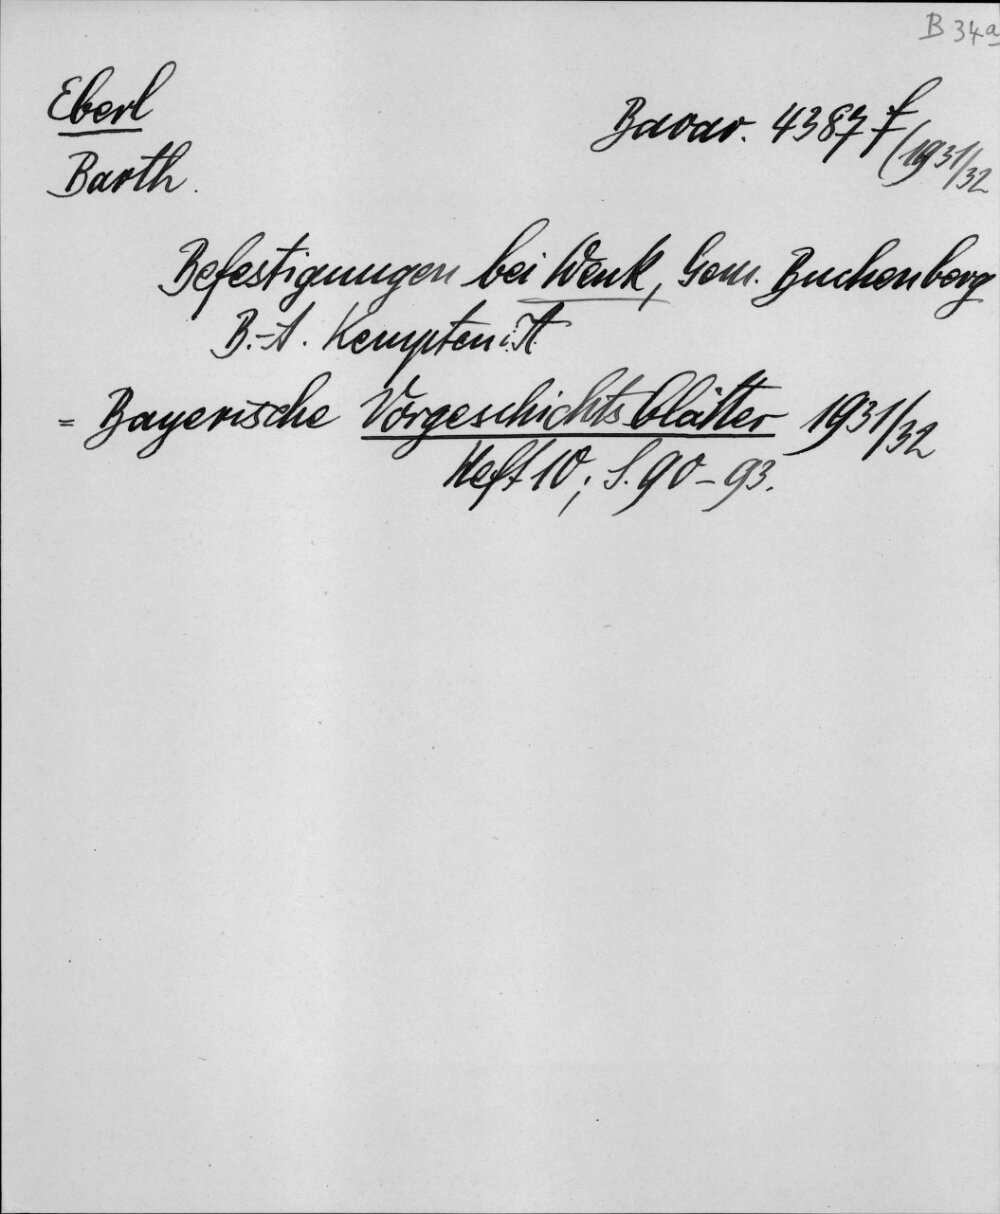 B 34a
Eberl
Bavar. 4387 f
(1931/32
Barth.
Befestigungen bei Wenk, Gem. Buchenberg
B.-A. Kempten i. A.
= Bayerische Vorgeschichtsblätter 1931/32
Heft 10; S. 90-93.